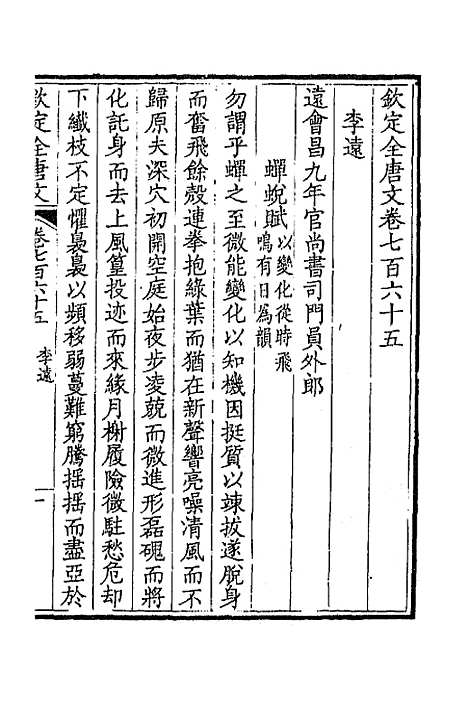 欽定全唐文卷七百六十五
李遠
遠會昌九年官尚書司門員外郎
蟬蛻賦以變化從時飛
鳴有日為韻
勿謂乎蟬之至微能變化以知機因挺質以竦拔遂脫身
而奮飛餘殼連拳抱綠葉而猶在新聲響亮噪清風而不
歸原夫深穴初開空庭始夜步凌兢而微進形磊磈而將
化託身而去上風篁投迹而來緣月榭履險微駐愁危却
下纖枝不定懼裊裊以頻移弱蔓難窮騰搖搖而盡亞於
欽定全唐文
卷七百六十五
李遠
一